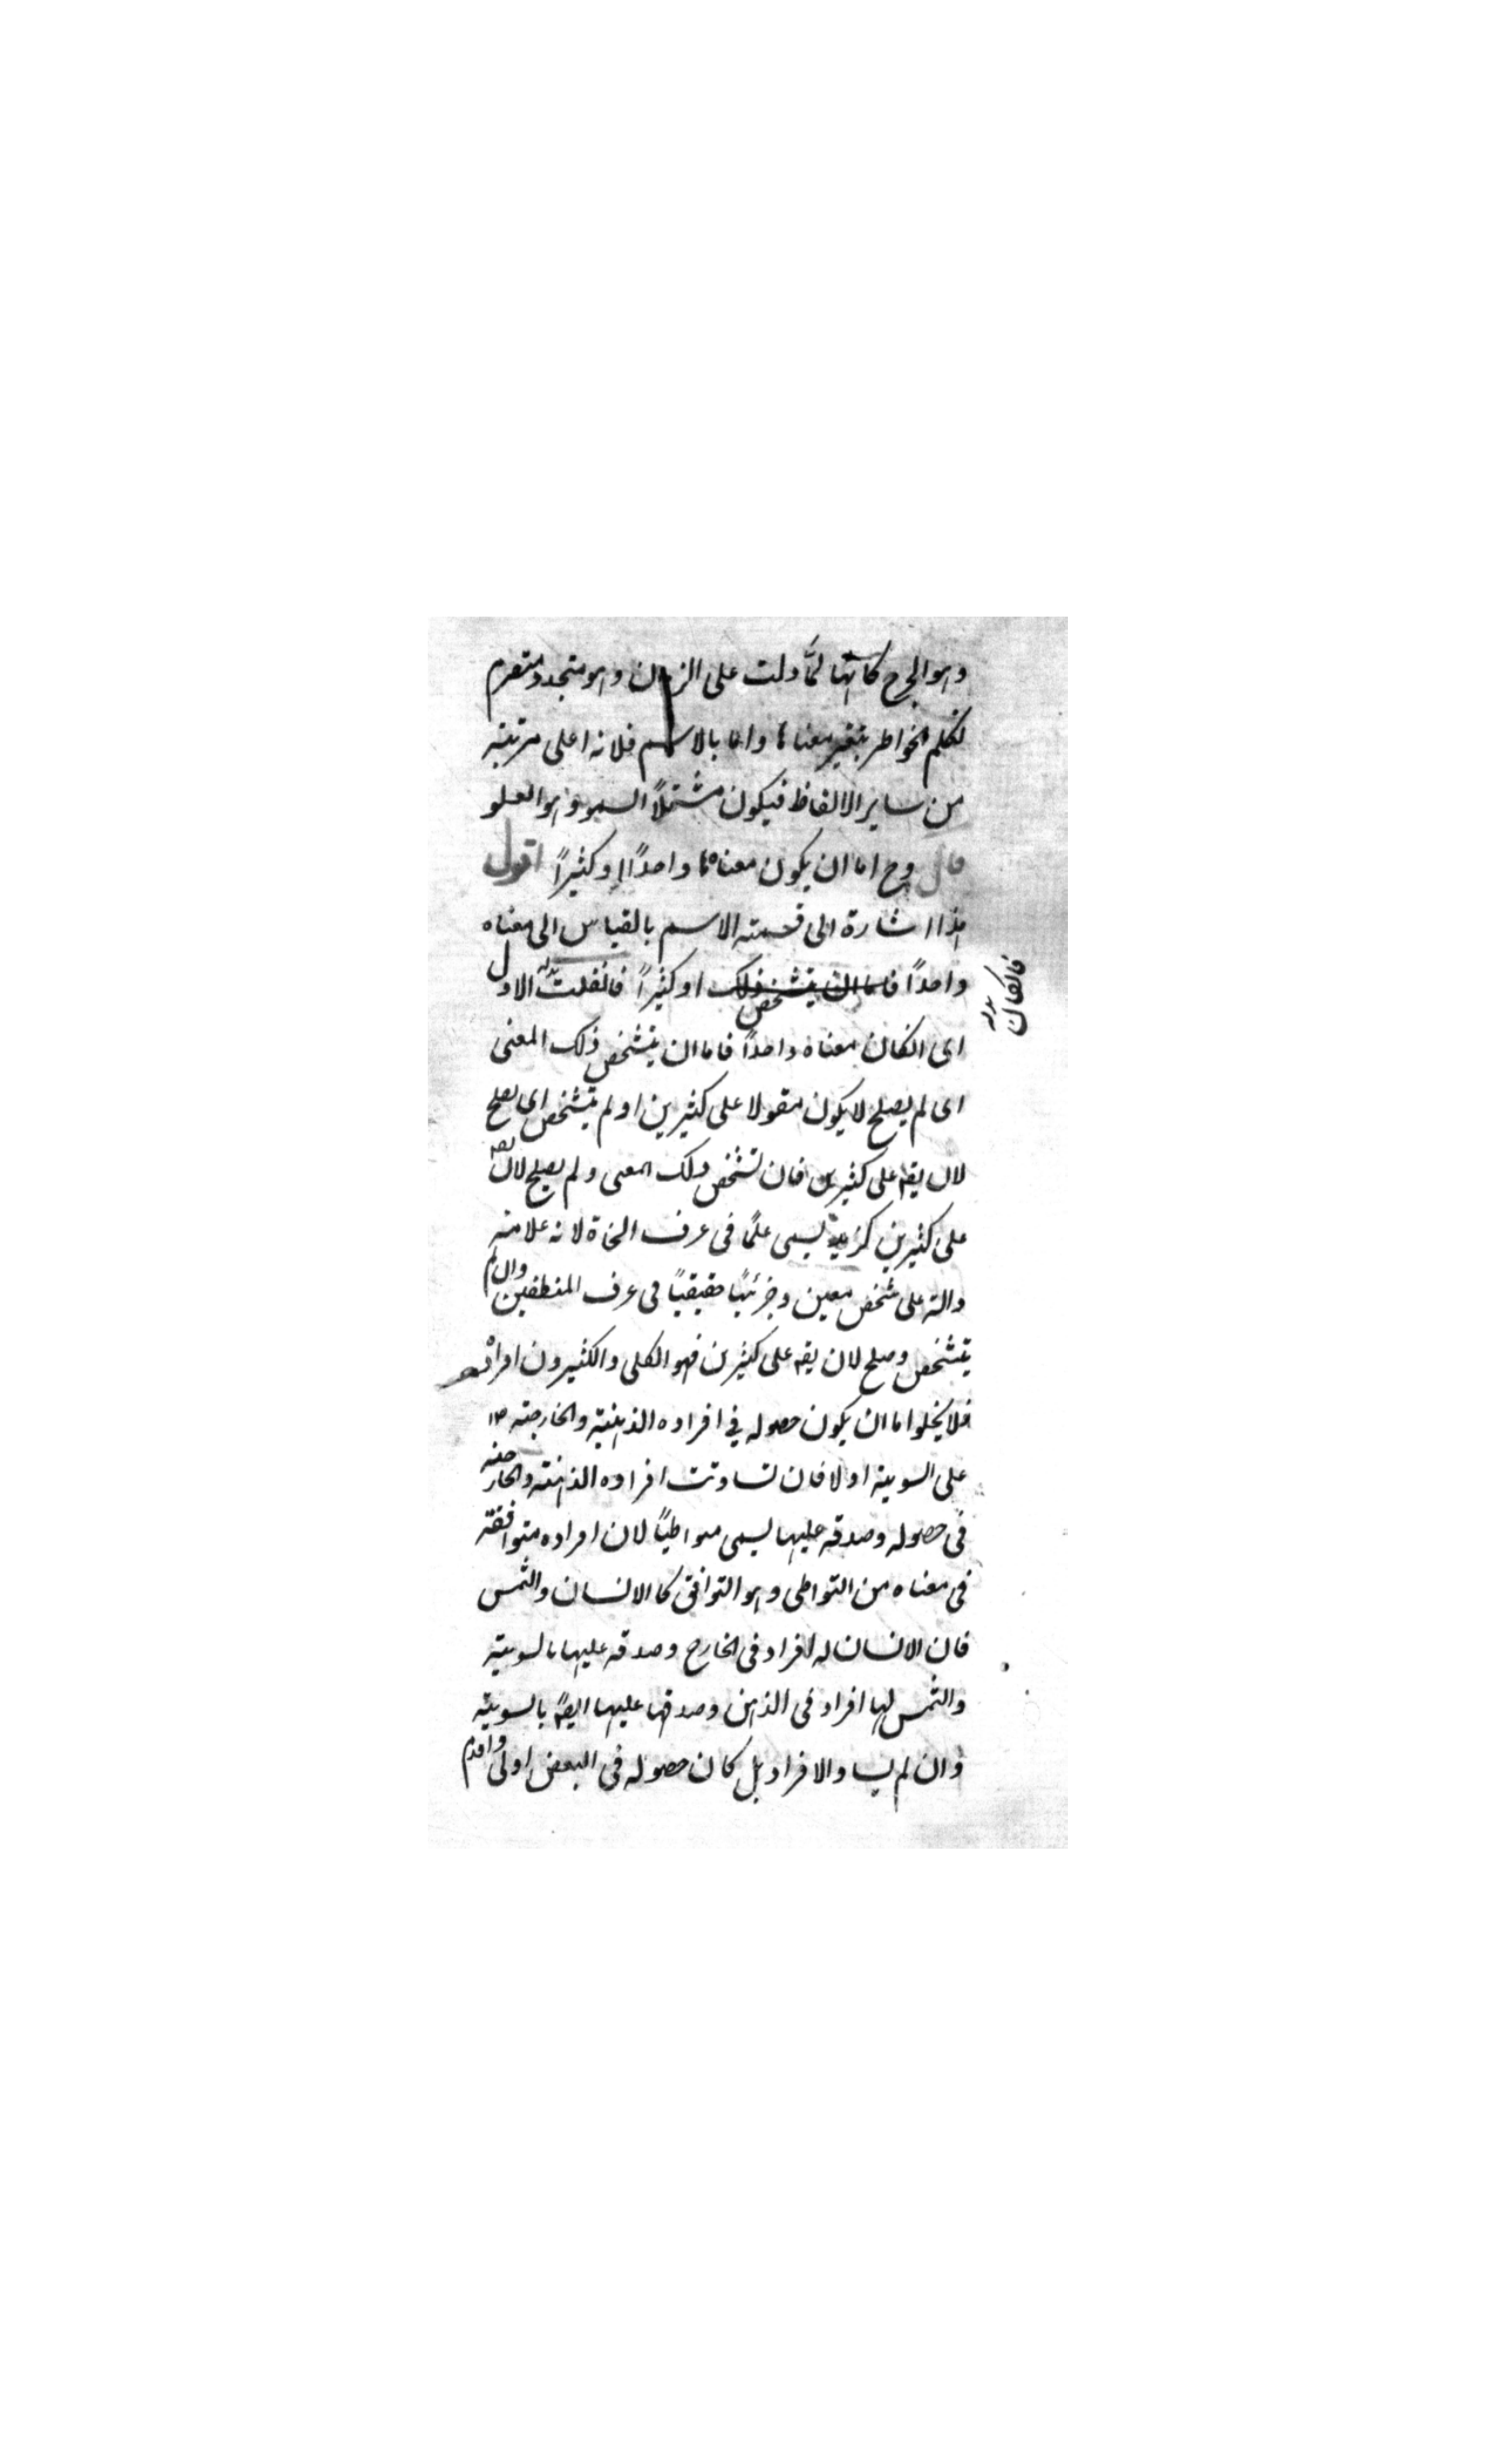 وهو الجرح كانها لمّا دلت على الزمان وهو متجدد متصرم
تكلم الخواطر بتغير معناها واما بالاسم فلانه اعلى مرتبة
من ساير الالفاظ فيكون مشتملاً السمو وهو العلو
قال وح اما ان يكون معناها واحدًا او كثيرًا اقول
هذا اشارة الى قسمة الاسم بالقياس الى معناه
واحدًا فاما ان يتشخص ذلك او كثيرًا الاول
فالكان
اى الكان معناه واحدًا فاما ان يتشخص ذلك المعنى
اى لم يصلح لا يكون مقولا على كثيرين او لم يتشخص اى يصلح
لان يقه على كثيرين فان تشخص ذلك المعنى ولم يصلح لان يقه
على كثيرين كزيد يسمى علمًا فى عرف النحاة لانه علامته
دالة على شخص معين وجزئيًا حقيقيًا فى عرف المنطقين وان لم
يتشخص وصلح لان يقه على كثيرين فهو الكلى والكثيرون افراده
فلا يخلوا اما ان يكون حصوله في افراده الذهنية والخارجته
على السوية او لا فان تساوت افراده الذهنته والخارجته
فى حصوله وصدقه عليها يسمى متواطيًا لان افراده متوافقة
فى معناه من التواطى وهو التوافق كالانسان والشمس
فان الانسان له افراد فى الخارج وصدقه عليها بالسوية
والشمس لها افراد فى الذهن وصدقها عليها ايضًا بالسوية
وان لم يساو الافراد بل كان حصوله فى البعض اولى واقدم